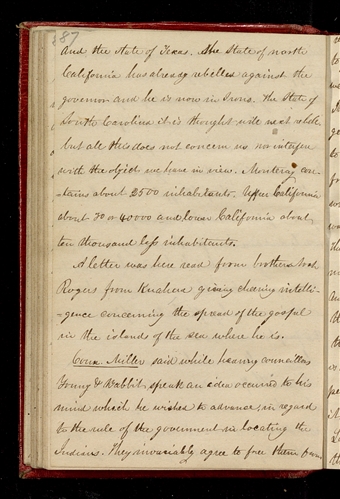 187
and the State of Texas. The State of north
California has already rebelled against the
governor and he is now in Irons. The State of
South Carolina it is thought will next rebel
but all this does not concern us nor interfere
with the object we have in view. Monteray con-
tains about 2500 inhabitants. Upper California
about 30 or 40000 and lower California about
ten thousand less inhabitants.
A letter was here read from brother Noah
Rogers from Huahine giving cheering intelli-
-gence concerning the spread of the gospel
in the islands of the sea where he is.
Coun. Miller said while hearing councillors
Young & Babbit, speak an idea occurred to his
mind which he wishes to advance in regard
to the rule of the government in locating the
Indians. They invariably agree to free them from